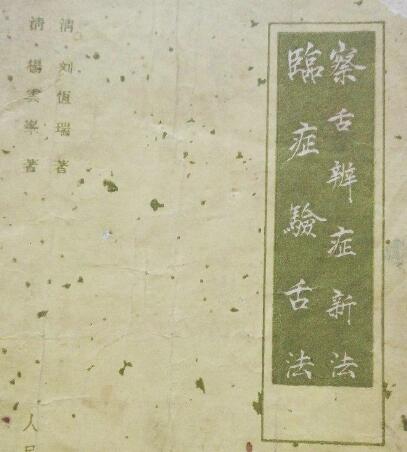 察舌辨症新法
臨症驗舌法
清 刘恆瑞著
清 楊雲峯著
人民